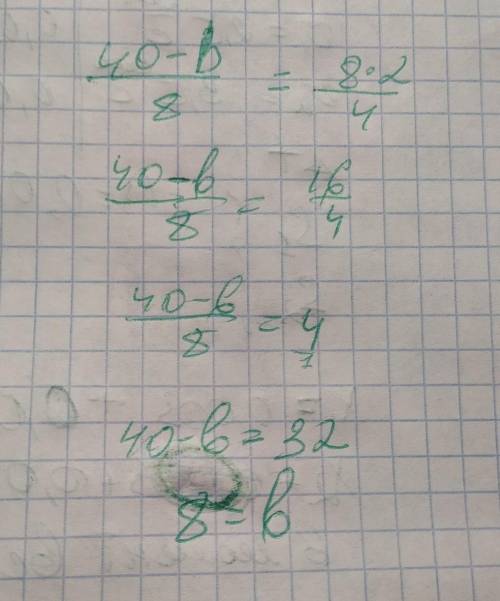 (40-b)/8 = (8·2)/4
(40-b)/8 = 16/4
(40-b)/8 = 4/1
40-b=32
8=b